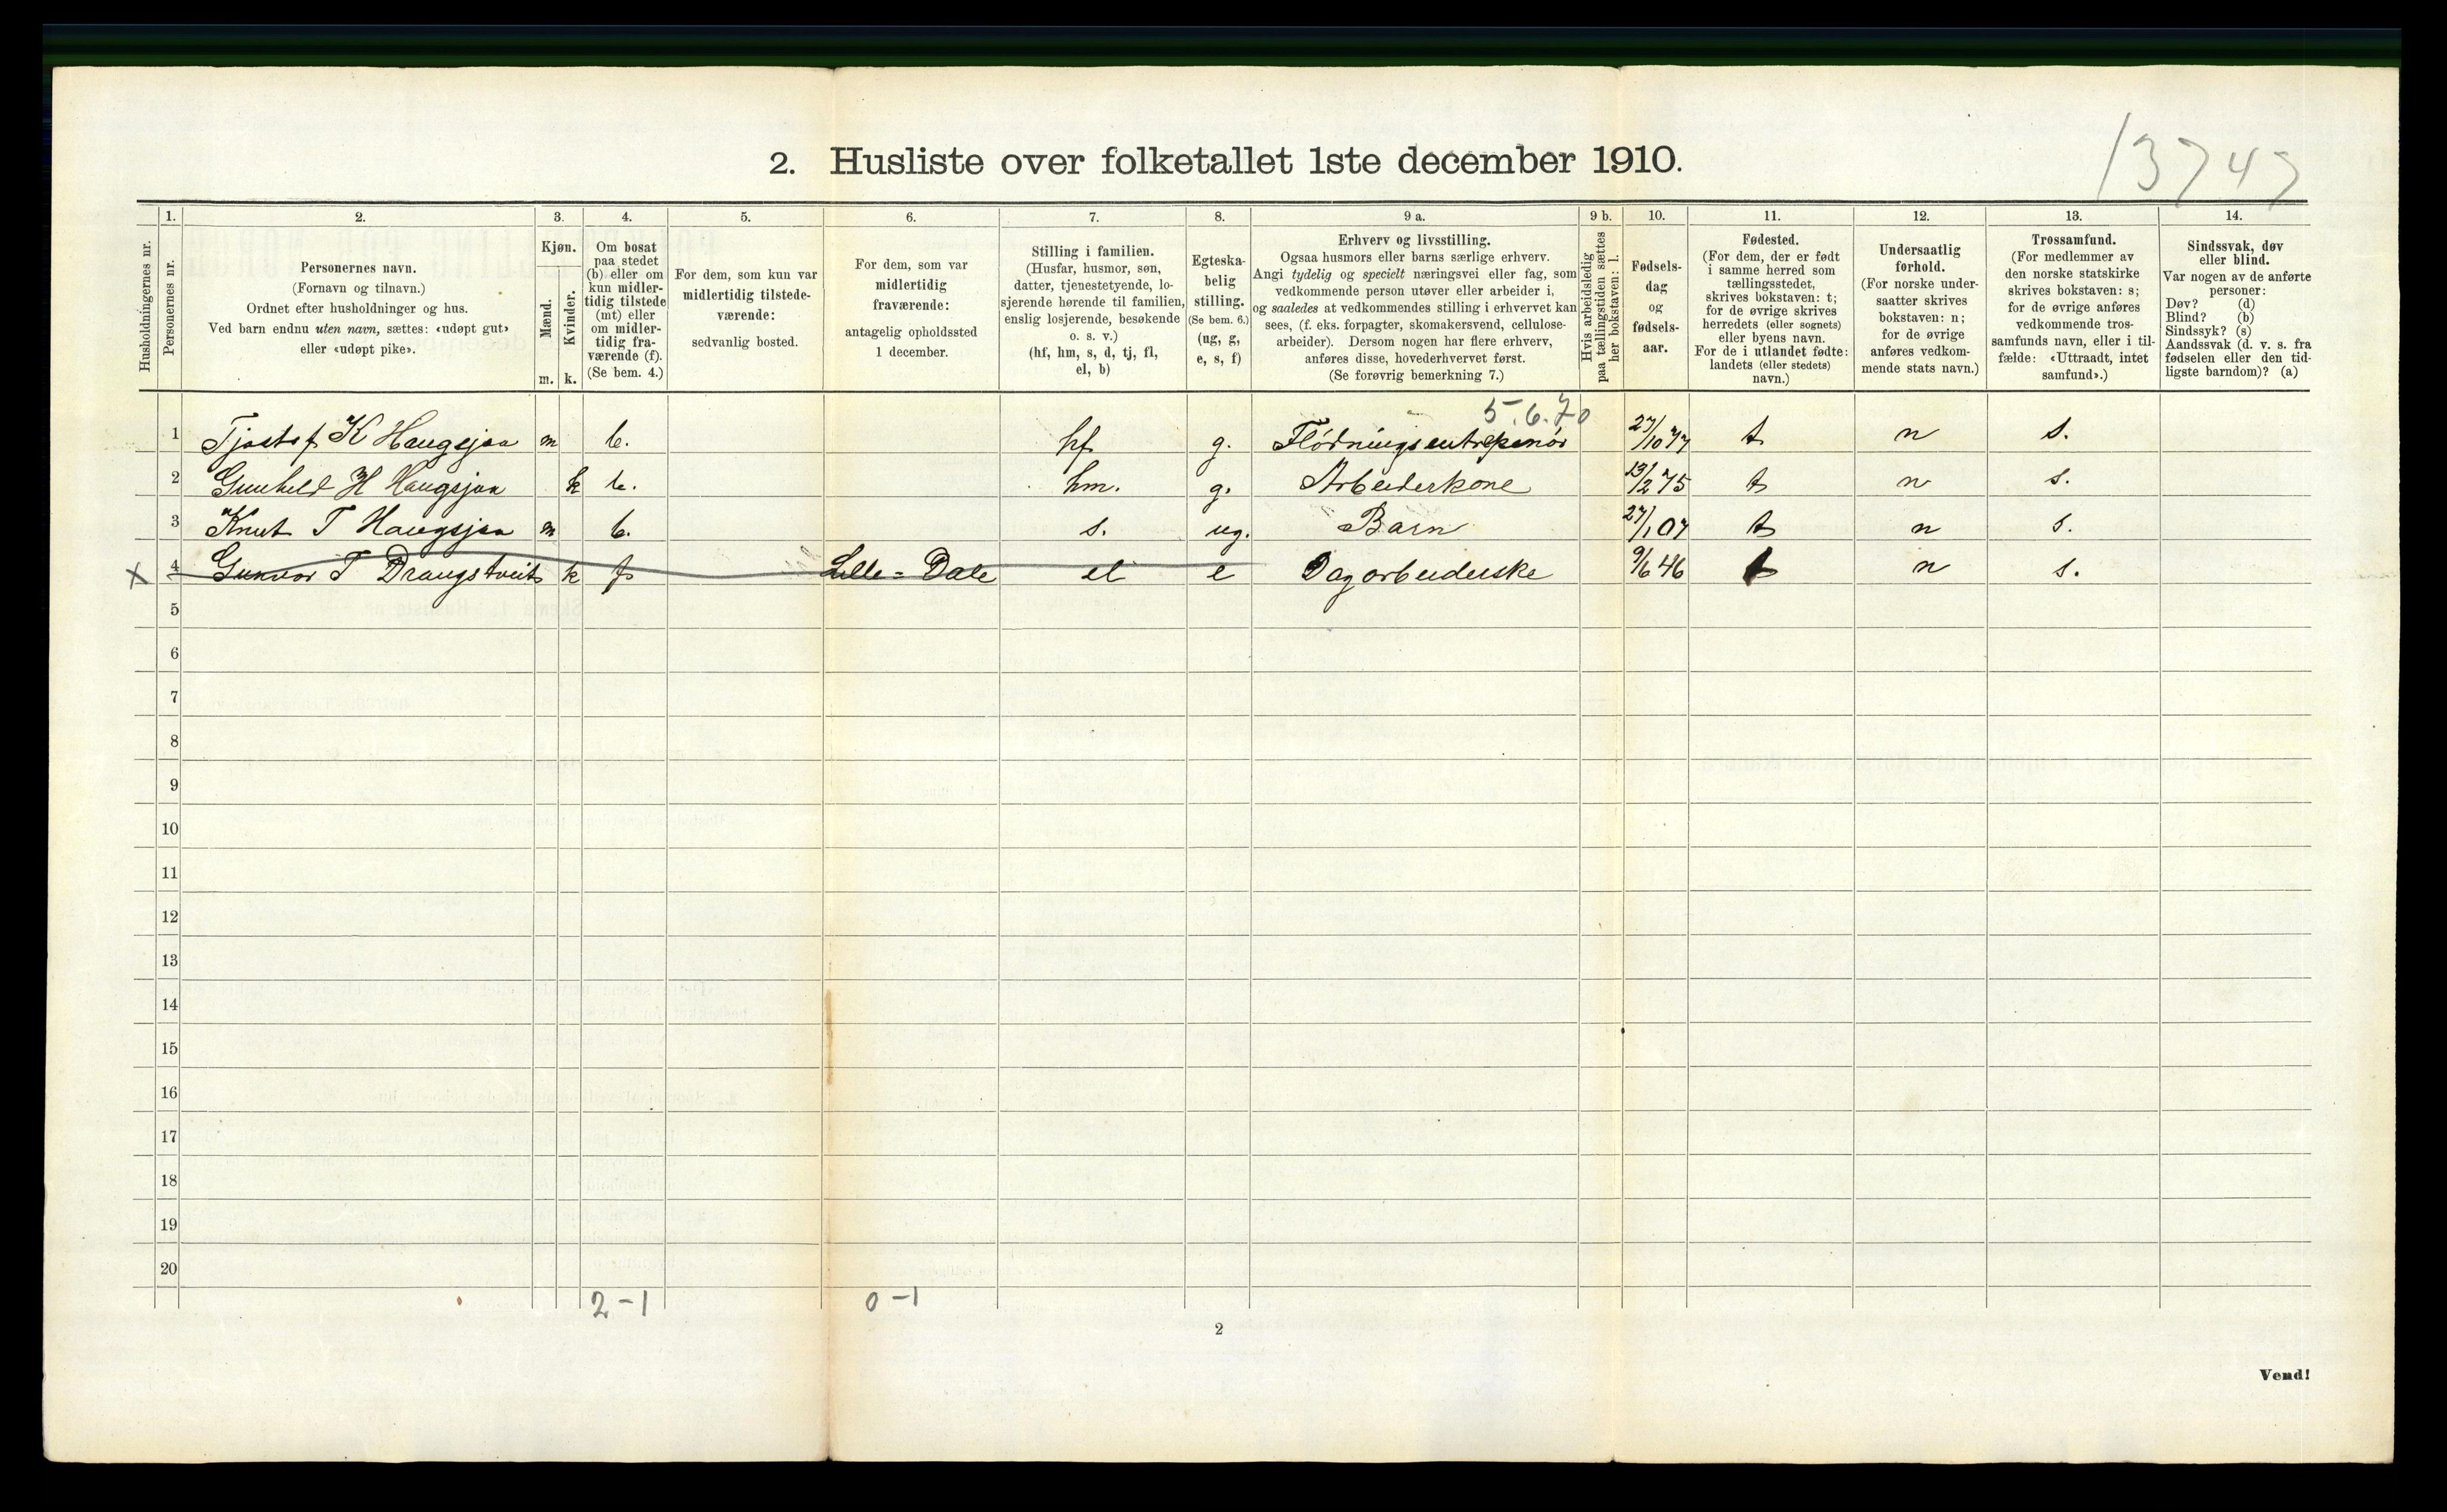 13747
2. Husliste over folketallet 1ste december 1910.
Husholdningernes nr.
1. Personernes nr.
2. Personernes navn. (Fornavn og tilnavn.) Ordnet efter husholdninger og hus. Ved barn endnu uten navn, sættes: «udøpt gut» eller «udøpt pike».
3. Kjøn. Mænd. m. Kvinder. k.
4. Om bosat paa stedet (b) eller om kun midlertidig tilstede (mt) eller om midlertidig fraværende (f). (Se bem. 4.)
5. For dem, som kun var midlertidig tilstedeværende: sedvanlig bosted.
6. For dem, som var midlertidig fraværende: antagelig opholdssted 1 december.
7. Stilling i familien. (Husfar, husmor, søn, datter, tjenestetyende, losjerende hørende til familien, enslig losjerende, besøkende o. s. v.) (hf, hm, s, d, tj, fl, el, b)
8. Egteskabelig stilling. (Se bem. 6.) (ug, g, e, s, f)
9 a. Erhverv og livsstilling. Ogsaa husmors eller barns særlige erhverv. Angi tydelig og specielt næringsvei eller fag, som vedkommende person utøver eller arbeider i, og saaledes at vedkommendes stilling i erhvervet kan sees, (f. eks. forpagter, skomakersvend, cellulosearbeider). Dersom nogen har flere erhverv, anføres disse, hovederhvervet først. (Se forøvrig bemerkning 7.)
9 b. Hvis arbeidsledig paa tællingstiden sættes her bokstaven: l.
10. Fødselsdag og fødselsaar.
11. Fødested. (For dem, der er født i samme herred som tællingsstedet, skrives bokstaven: t; for de øvrige skrives herredets (eller sognets) eller byens navn. For de i utlandet fødte: landets (eller stedets) navn.)
12. Undersaatlig forhold. (For norske undersaatter skrives bokstaven: n; for de øvrige anføres vedkommende stats navn.)
13. Trossamfund. (For medlemmer av den norske statskirke skrives bokstaven: s; for de øvrige anføres vedkommende trossamfunds navn, eller i tilfælde: «Uttraadt, intet samfund».)
14. Sindssvak, døv eller blind. Var nogen av de anførte personer: Døv? (d) Blind? (b) Sindssyk? (s) Aandssvak (d. v. s. fra fødselen eller den tidligste barndom)? (a)
5.6.70
1 Tjostof K Haugsjaa m b. hf g. Flødningsentrepenör 27/10 77 t n s.
2 Gunhild H Haugsjaa k b. hm. g. Arbeiderkone 13/2 75 t n s.
3 Knut T Haugsjaa m b. s. ug. Barn 27/1 07 t n s.
x 4 Gunvor T Draugstveit k f Lille=Dale el e Dagarbeiderske 9/6 46 t n s.
5
6
7
8
9
10
11
12
13
14
15
16
17
18
19
20
2-1 0-1
2
Vend!